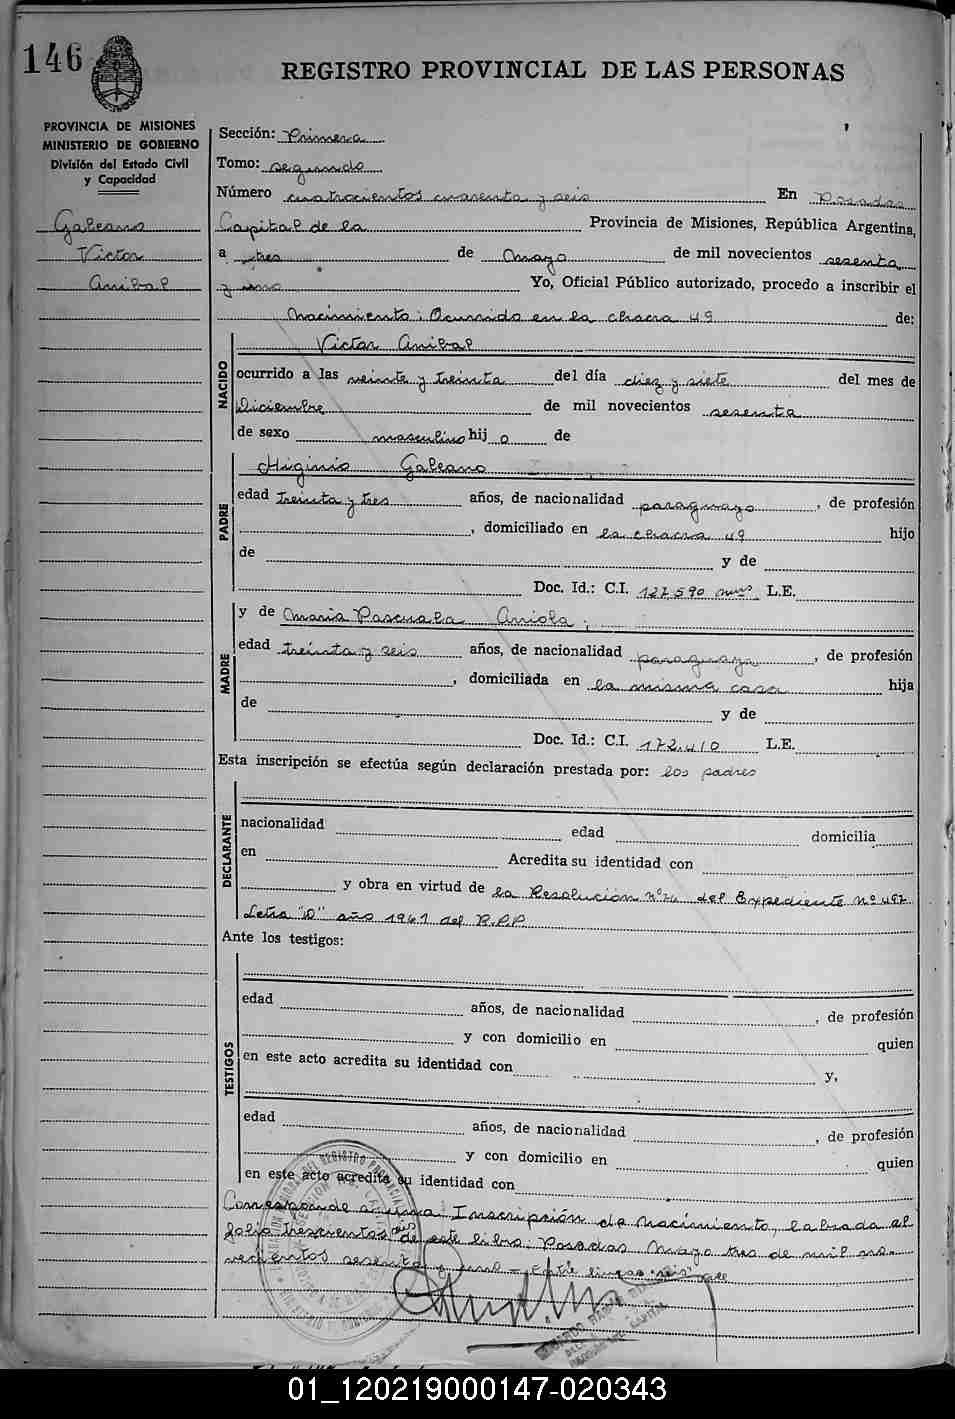 146
REGISTRO PROVINCIAL DE LAS PERSONAS
PROVINCIA DE MISIONES
MINISTERIO DE GOBIERNO
División del Estado Civil
y Capacidad
Galeano
Victor
Anibal
Sección: Primera
Tomo: segundo
Número cuatrocientos cuarenta y seis En Posadas
Capital de la Provincia de Misiones, República Argentina,
a tres de Mayo de mil novecientos sesenta
y uno Yo, Oficial Público autorizado, procedo a inscribir el
Nacimiento: Ocurrido en la chacra 49 de:
NACIDO
Victor Anibal
ocurrido a las veinte y treinta del día diez y siete del mes de
Diciembre de mil novecientos sesenta
de sexo masculino hij o de
PADRE
Higinio Galeano
edad treinta y tres años, de nacionalidad paraguayo, de profesión
, domiciliado en la chacra 49 hijo
de y de
Doc. Id.: C.I. 127.590 L.E.
MADRE
y de Maria Pascuala Aniola;
edad treinta y seis años, de nacionalidad paraguaya, de profesión
, domiciliada en la misma casa hija
de y de
Doc. Id.: C.I. 172.410 L.E.
Esta inscripción se efectúa según declaración prestada por: los padres
DECLARANTE
nacionalidad edad domicilia
en Acredita su identidad con
y obra en virtud de la Resolución del Expediente nº 497
Letra "D" año 1961 del R.P.P.
Ante los testigos:
TESTIGOS
edad años, de nacionalidad , de profesión
y con domicilio en quien
en este acto acredita su identidad con y,
edad años, de nacionalidad , de profesión
y con domicilio en quien
en este acto acredita su identidad con
Corresponde a una Inscripción de Nacimiento, labrada al
seis
folio trescientos de este libro: Posadas Mayo tres de mil no-
vecientos sesenta y uno - Entre lineas: seis: vale
01_120219000147-020343